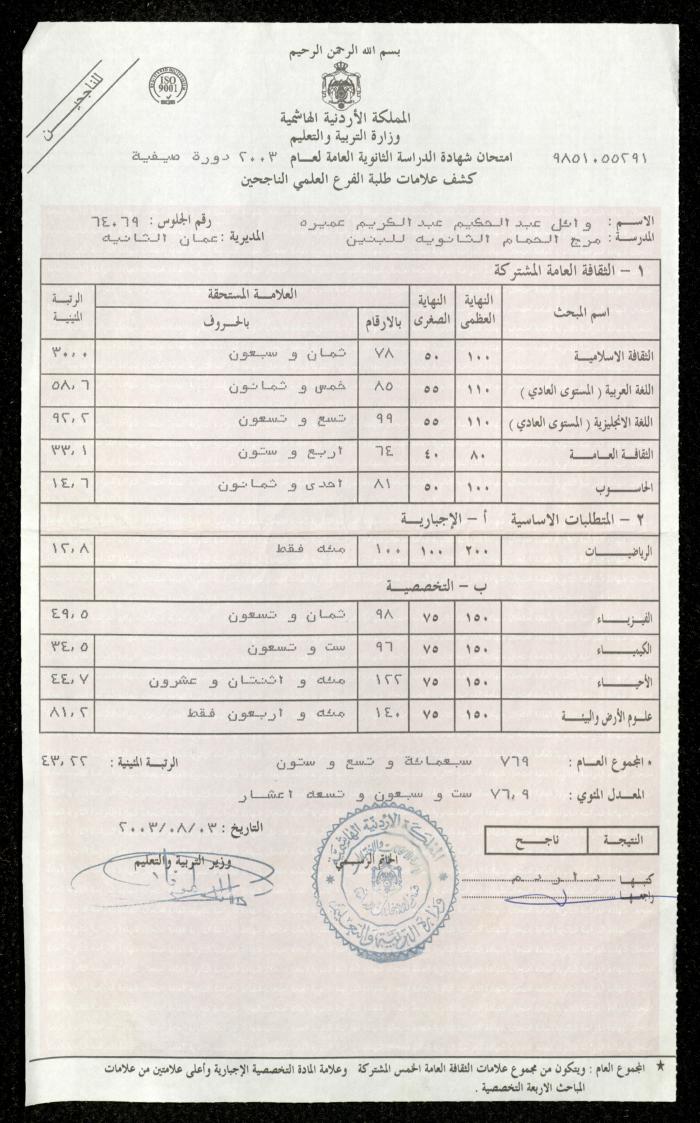 بسم الله الرحمن الرحيم
للناجحين
ISO 9001
المملكة الأردنية الهاشمية
وزارة التربية والتعليم
امتحان شهادة الدراسة الثانوية العامة لعام ٢٠٠٣ دورة صيفية ٩٨٥١٠٥٥٢٩١
كشف علامات طلبة الفرع العلمي الناجحين
الاسم : وائل عبد الحكيم عبد الكريم عميره رقم الجلوس : ٦٤٠٦٩
المدرسة : مرج الحمام الثانويه للبنين المديرية : عمان الثانيه
١ - الثقافة العامة المشتركة
اسم المبحث النهاية العظمى النهاية الصغرى العلامة المستحقة الرتبة المئينية
بالارقام بالحروف
الثقافة الاسلامية ١٠٠ ٥٠ ٧٨ ثمان و سبعون ٣٠,٠
اللغة العربية ( المستوى العادي ) ١١٠ ٥٥ ٨٥ خمس و ثمانون ٥٨,٦
اللغة الانجليزية ( المستوى العادي ) ١١٠ ٥٥ ٩٩ تسع و تسعون ٩٢,٢
الثقافة العامة ٨٠ ٤٠ ٦٤ اربع و ستون ٣٣,١
الحاسوب ١٠٠ ٥٠ ٨١ احدى و ثمانون ١٤,٦
٢ - المتطلبات الاساسية أ - الإجبارية
الرياضيات ٢٠٠ ١٠٠ ١٠٠ مئه فقط ١٢,٨
ب - التخصصية
الفيزياء ١٥٠ ٧٥ ٩٨ ثمان و تسعون ٤٩,٥
الكيمياء ١٥٠ ٧٥ ٩٦ ست و تسعون ٣٤,٥
الأحياء ١٥٠ ٧٥ ١٢٢ مئه و اثنتان و عشرون ٤٤,٧
علوم الأرض والبيئة ١٥٠ ٧٥ ١٤٠ مئه و اربعون فقط ٨١,٢
* المجموع العام : ٧٦٩ سبعمائة و تسع و ستون الرتبة المئينية : ٤٣,٢٢
المعدل المئوي : ٧٦,٩ ست و سبعون و تسعه اعشار
التاريخ : ٢٠٠٣/٠٨/٠٣
النتيجة ناجح
الخاتم الرسمي
وزير التربية والتعليم
كتبها
راجعها
المملكة الاردنية الهاشمية
وزارة التربية والتعليم
* المجموع العام : ويتكون من مجموع علامات الثقافة العامة الخمس المشتركة وعلامة المادة التخصصية الإجبارية وأعلى علامتين من علامات
المباحث الاربعة التخصصية .